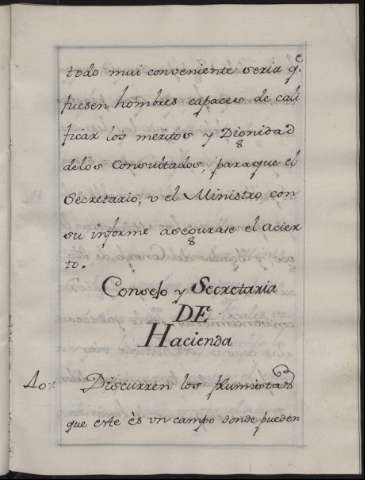 todo mui conveniente seria q.e
fuesen hombres capaces de cali
ficar los meritos y Dignidad
delos Consultados, paraque el
Secretario, v el Ministro con
su informe asegurase el acier
to.
Consejo y Secretaria
DE
Hacienda
40. Discurren los plumistas
que este ès vn campo donde pueden